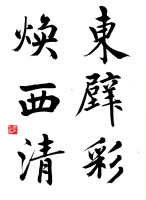 東壁彩
煥西清